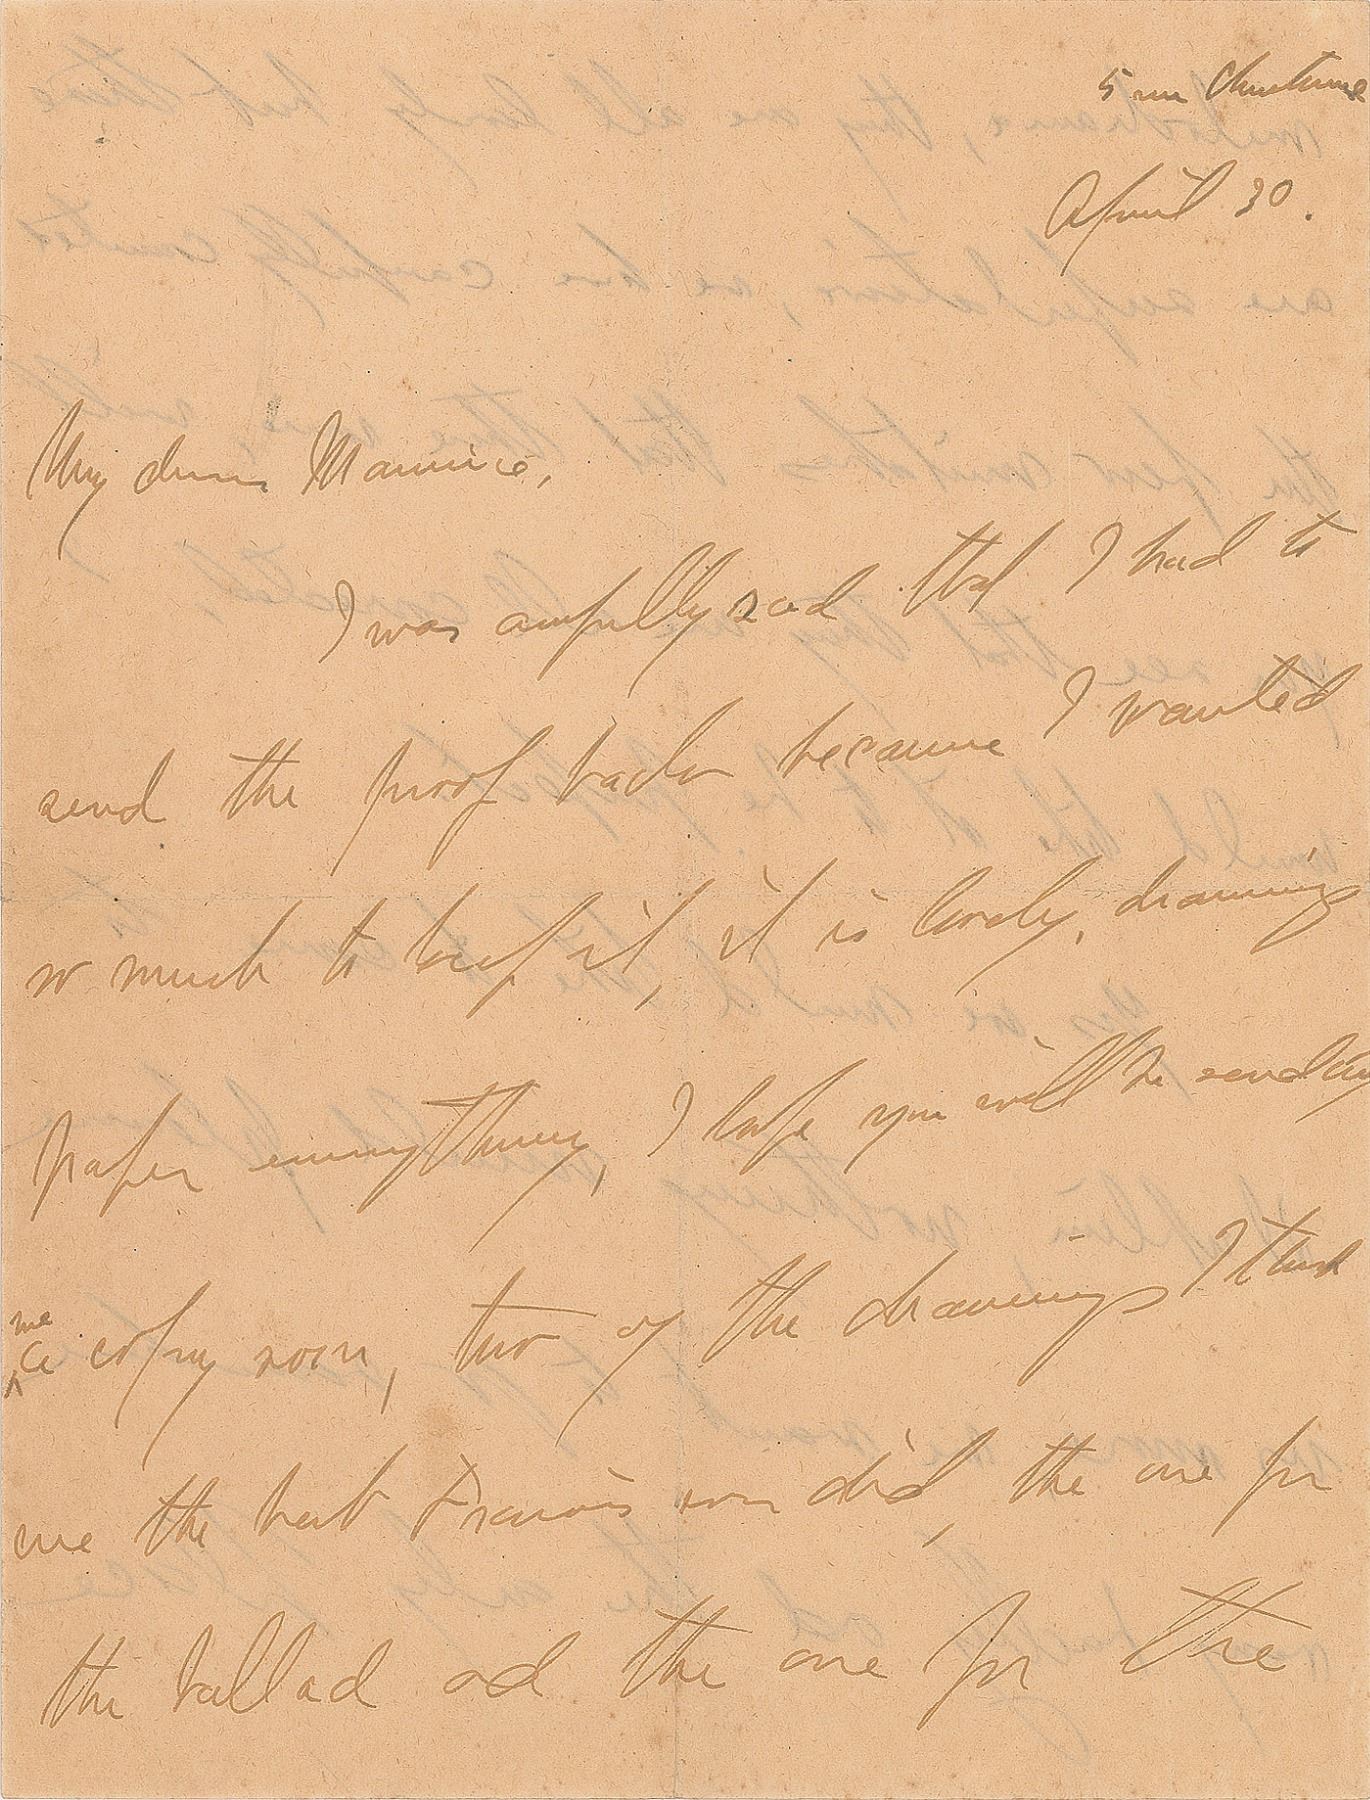 5 rue Christine
April 30.
My dear Maurice,
I was awfully sad that I had to
send the proof back because I wanted
so much to keep it, it is lovely, drawings
paper everything, I hope you will be sending
me
a copy soon, two of the drawings I think
are the best Francis ever did, the one for
the ballad and the one for the